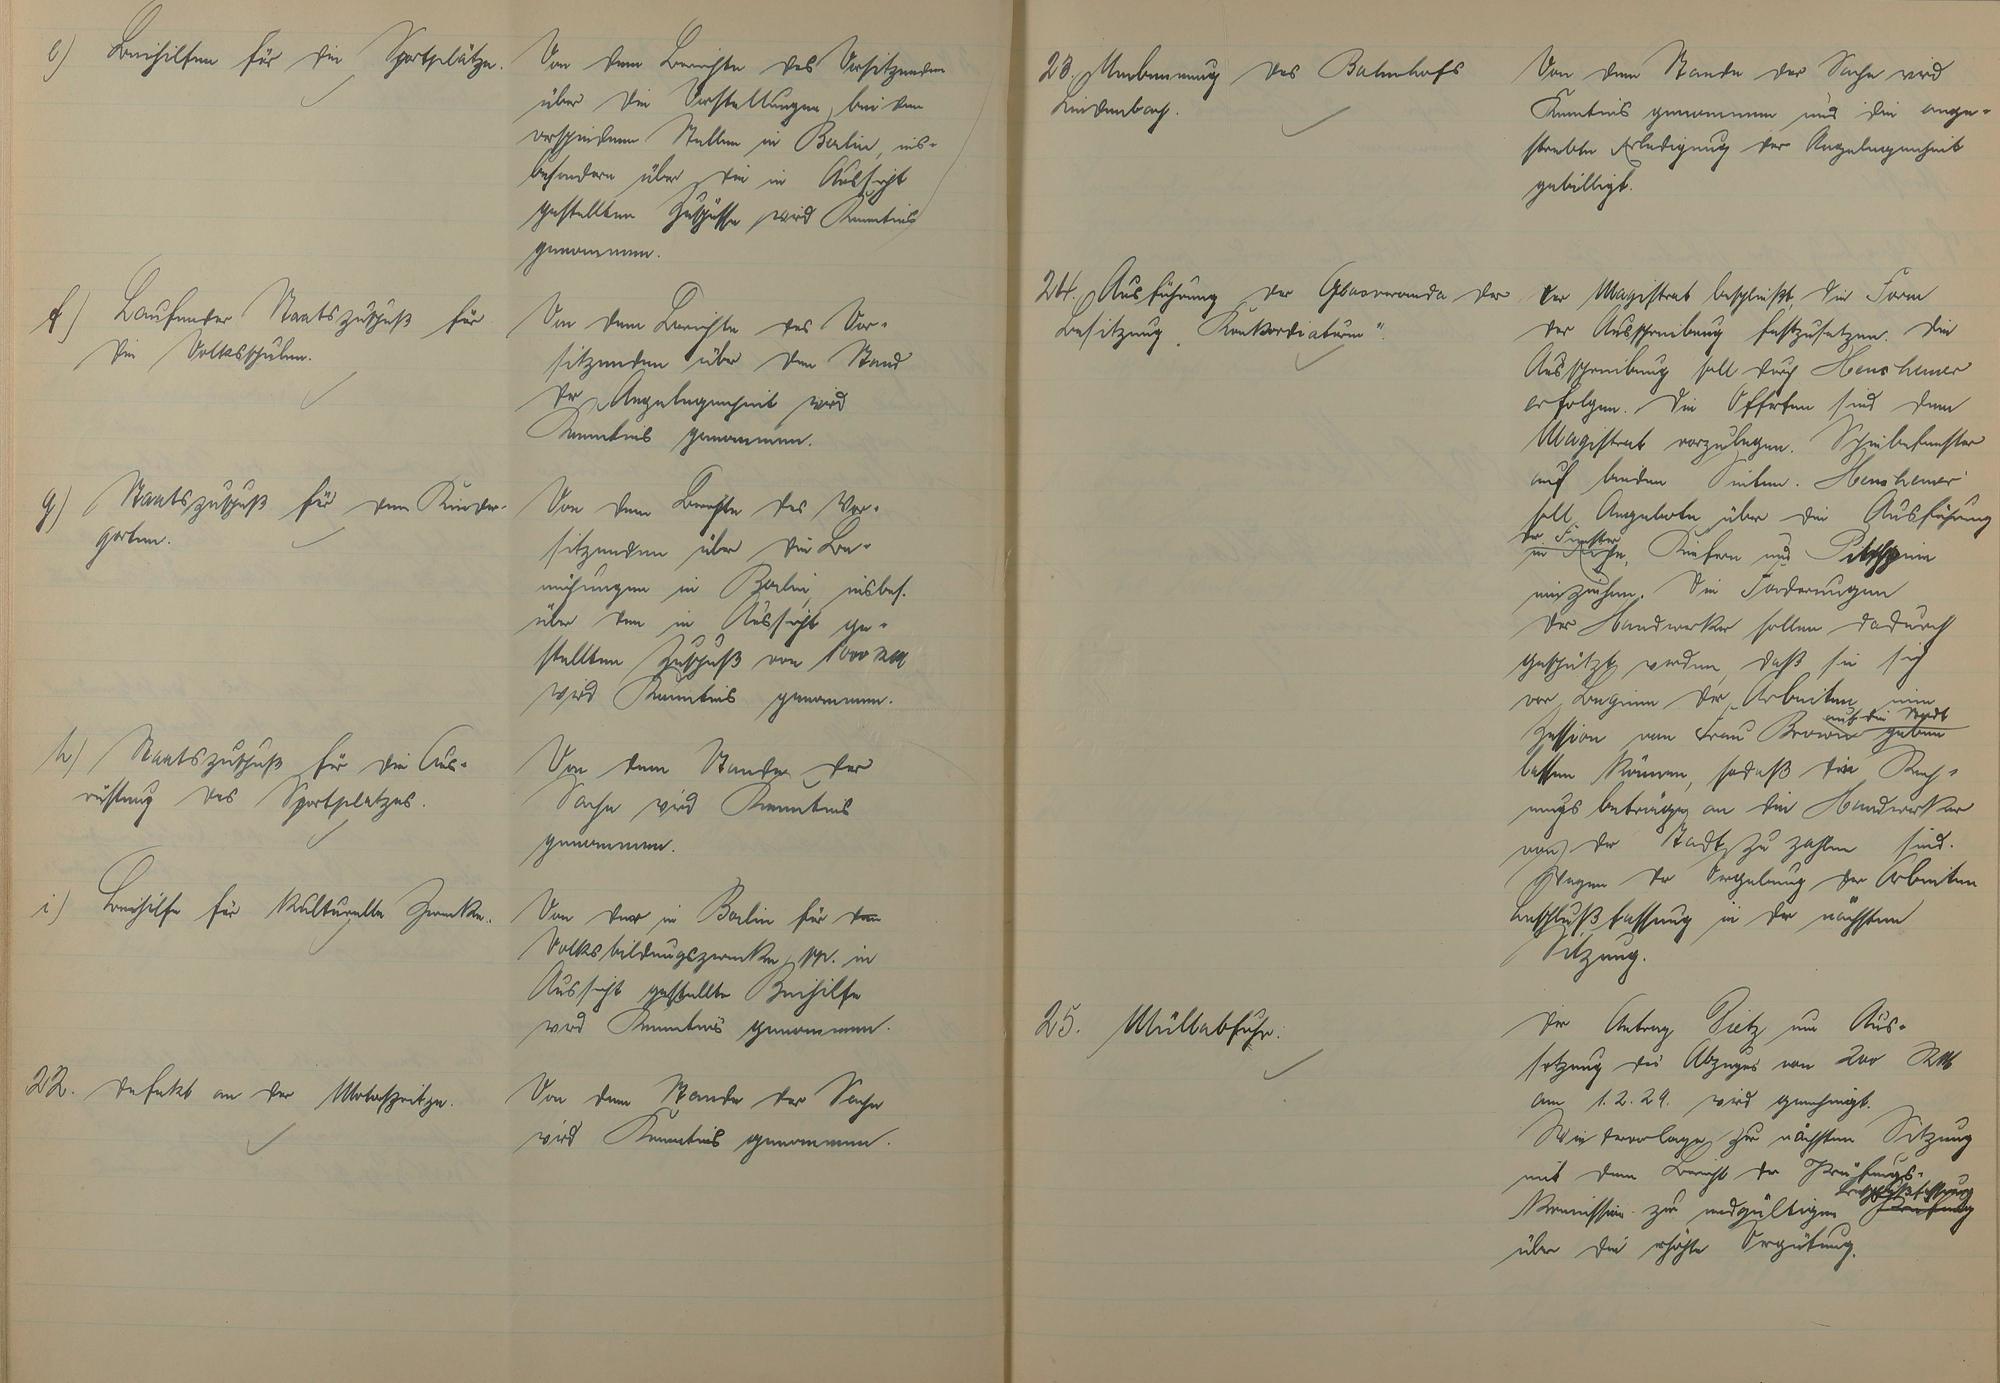 e) Beihilfen für die Sportplätze.
Von dem Berichte des Vorsitzenden
über die Vorstellungen bei den
verschiedenen Stellen in Berlin, ins-
besondere über die in Aussicht
gestellten Zuschüsse wird Kenntnis
genommen.
f) Laufender Staatszuschuß für
die Volksschulen.
Von dem Berichte des Vor-
sitzenden über den Stand
der Angelegenheit wird
Kenntnis genommen.
g) Staatszuschuß für den Kinder-
garten.
Von dem Berichte des Vor-
sitzenden über die Be-
mühungen in Berlin, insbes.
über den in Aussicht ge-
stellten Zuschuß von 1000 RM
wird Kenntnis genommen.
h) Staatszuschuß für die Aus-
rüstung des Sportplatzes.
Von dem Stande der
Sache wird Kenntnis
genommen.
i) Beihilfe für kulturelle Zwecke.
Von der in Berlin für
Volksbildungszwecke pp. in
Aussicht gestellte Beihilfe
wird Kenntnis genommen.
22. Defekt an der Motorspritze.
Von dem Stande der Sache
wird Kenntnis genommen.
23. Umbenennung des Bahnhofs
Lindenbach.
Von dem Stande der Sache wird
Kenntnis genommen und die ange-
strebte Erledigung der Angelegenheit
gebilligt.
24. Ausführung der Glasveranda der
Besitzung "Konkordiaturm".
Der Magistrat beschließt die Form
der Ausschreibung festzusetzen. Die
Ausschreibung soll durch
erfolgen. Die Offerten sind dem
Magistrat vorzulegen. Schiebefenster
auf beiden Seiten.
soll Angebote über die Ausführung
der Fenster
in Eiche, Kiefern und Pitchpine
einziehen. Die Forderungen
der Handwerker sollen dadurch
geschützt werden, daß sie sich
vor Beginn der Arbeiten eine
auf die Stadt
Zession von Frau Brown geben
lassen können, sodaß die Rech-
nungsbeträge an die Handwerker
von der Stadt zu zahlen sind.
Wegen der Vergebung der Arbeiten
Beschlußfassung in der nächsten
Sitzung.
25. Müllabfuhr.
Der Antrag Dietz um Aus-
setzung des Abzuges von 200 RM
am 1.2.29. wird genehmigt.
Wiedervorlage zur nächsten Sitzung
mit dem Bericht der Prüfungs-
Beschlußfassung
kommission zur endgültigen Prüfung
über die erhöhte Vergütung.